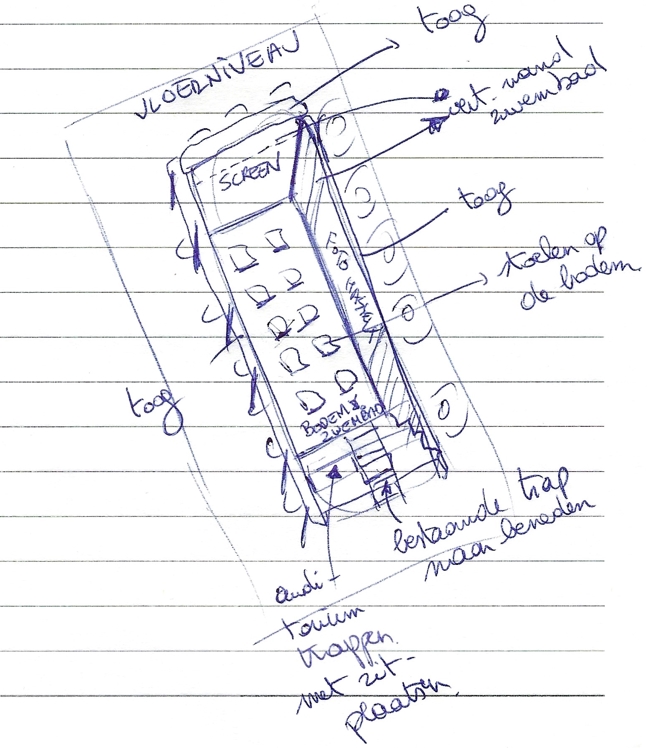 VLOERNIVEAU
toog
vert. wand
zwembad
SCREEN
toog
stoelen op
de bodem
FOTO
toog
BODEM
ZWEMBAD
bestaande trap
naar beneden
audi-
torium
trappen
met zit-
plaatsen